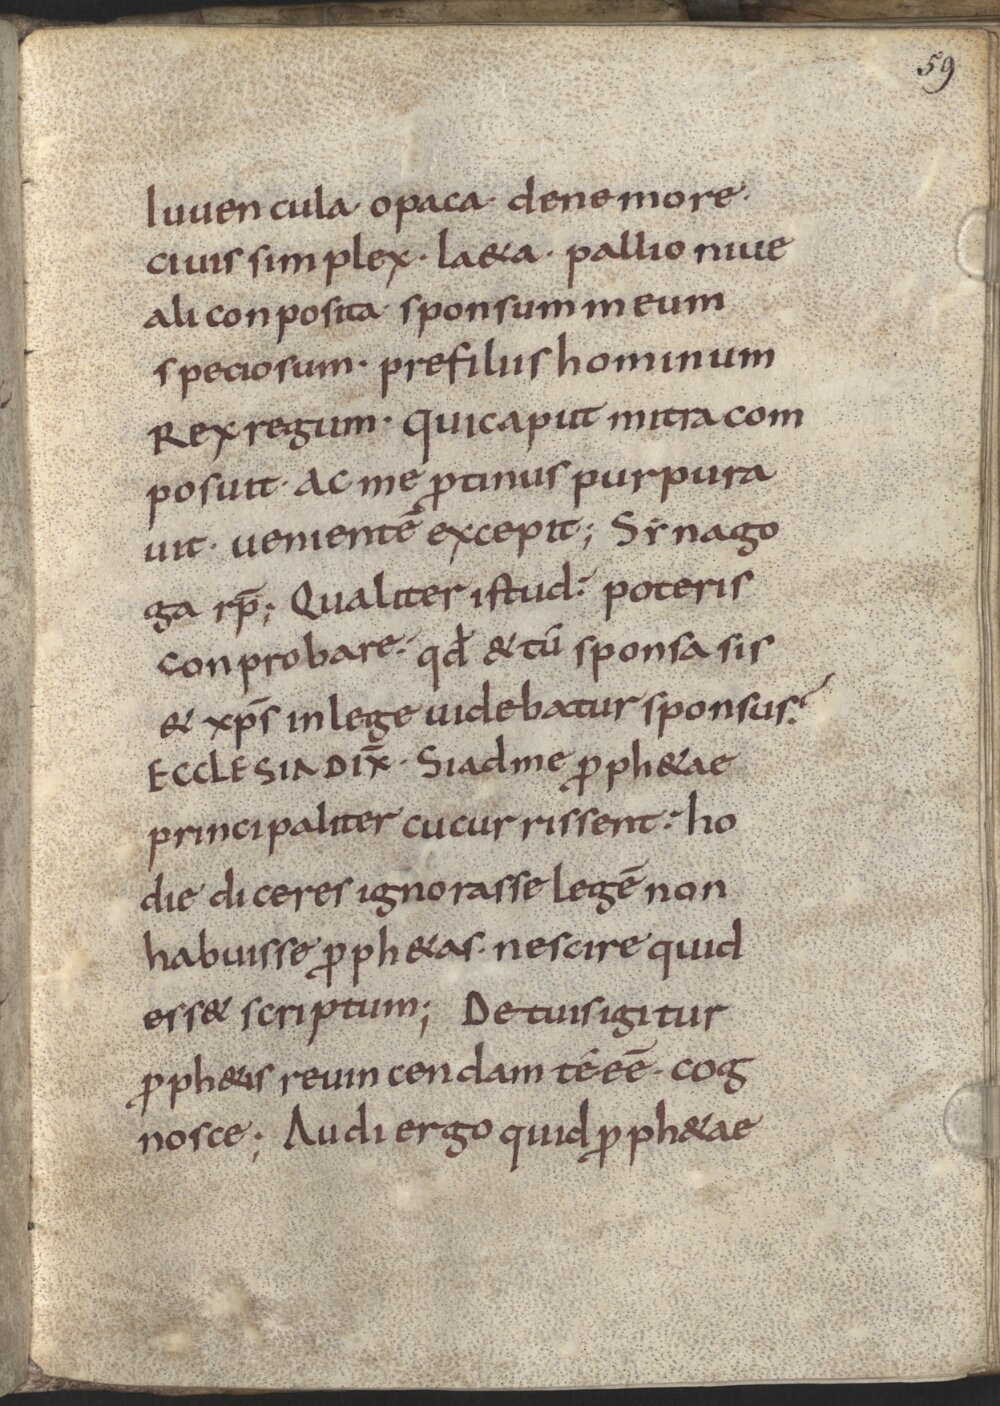 59
Iuuencula· opaca· denemore·
ciuis simplex· la&a· pallio niue
ali conposita· sponsum meum
speciosum· prefiliis hominum
Rex regum· Qui caput mitra com
posuit· ac me ꝓtinus purpura
uit· uenientē excepit; Sẏnago
ga rp̄; Qualiter istud: poteris
conprobare: qđ & tū sponsa sis
& xp̄s in lege uidebatur sponsus?
ECCLESIA DIX̄· Si ad me ꝓph&ae
principaliter cucurrissent: ho
die diceres ignorasse legē non
habuisse ꝓph&as· nescire quid
ess& scriptum; De tuis igitur
ꝓph&is reuincendam tē eē· cog
nosce; Audi ergo quid ꝓph&ae